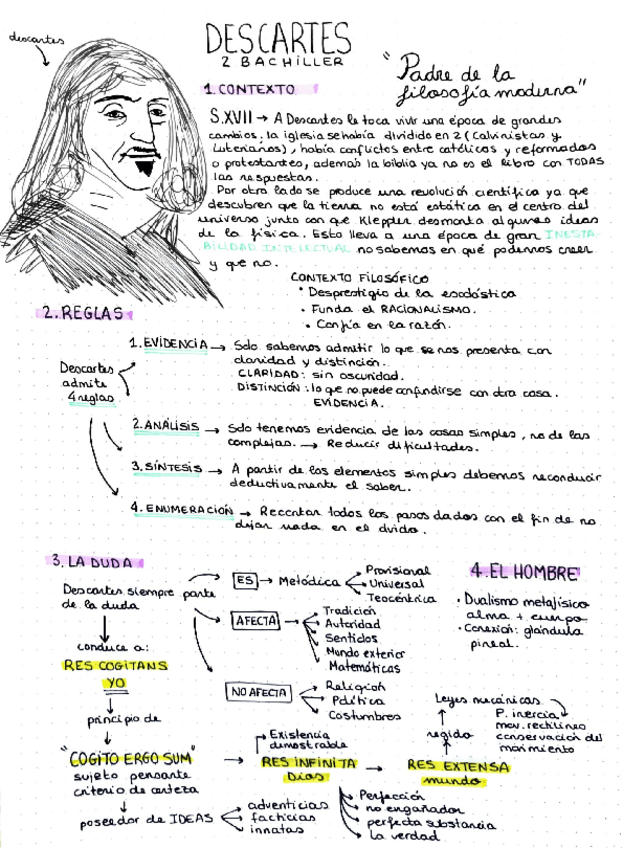 descartes
DESCARTES
2 BACHILLER
"Padre de la
filosofía moderna"
1. CONTEXTO
S.XVII → A Descartes le toca vivir una época de grandes
cambios, la iglesia se había dividido en 2 (Calvinistas y
Luteranos), había conflictos entre católicos y reformados
o protestantes, además la biblia ya no es el libro con TODAS
las respuestas.
Por otro lado se produce una revolución científica ya que
descubren que la tierra no está estática en el centro del
universo junto con que Kleppler desmonta algunas ideas
de la física. Esto lleva a una época de gran INESTA-
BILIDAD INTELECTUAL no sabemos en qué podemos creer
y que no.
CONTEXTO FILOSÓFICO
• Desprestigio de la escolástica
• Funda el RACIONALISMO.
• Confía en la razón.
2. REGLAS
Descartes
admite
4 reglas
1. EVIDENCIA → Solo sabemos admitir lo que se nos presenta con
claridad y distinción.
CLARIDAD: sin oscuridad.
DISTINCIÓN: lo que no puede confundirse con otra cosa.
EVIDENCIA.
2. ANÁLISIS → Solo tenemos evidencia de las cosas simples, no de las
complejas. → Reducir dificultades.
3. SÍNTESIS → A partir de los elementos simples debemos reconducir
deductivamente el saber.
4. ENUMERACIÓN → Recontar todos los pasos dados con el fin de no
dejar nada en el olvido.
3. LA DUDA
Descartes siempre parte
de la duda
conduce a:
RES COGITANS
YO
principio de
"COGITO ERGO SUM"
sujeto pensante
criterio de certeza
poseedor de IDEAS
adventicias
facticias
innatas
ES → Metódica
Provisional
Universal
Teocéntrica
AFECTA →
Tradición
Autoridad
Sentidos
Mundo exterior
Matemáticas
NO AFECTA
Religión
Política
Costumbres
Existencia
demostrable
RES INFINITA
Dios
Perfección
no engañador
perfecta substancia
la verdad
RES EXTENSA
mundo
regido
Leyes mecánicas
P. inercia
mov. rectilíneo
conservación del
movimiento
4. EL HOMBRE
• Dualismo metafísico
alma + cuerpo
• Conexión: glándula
pineal.